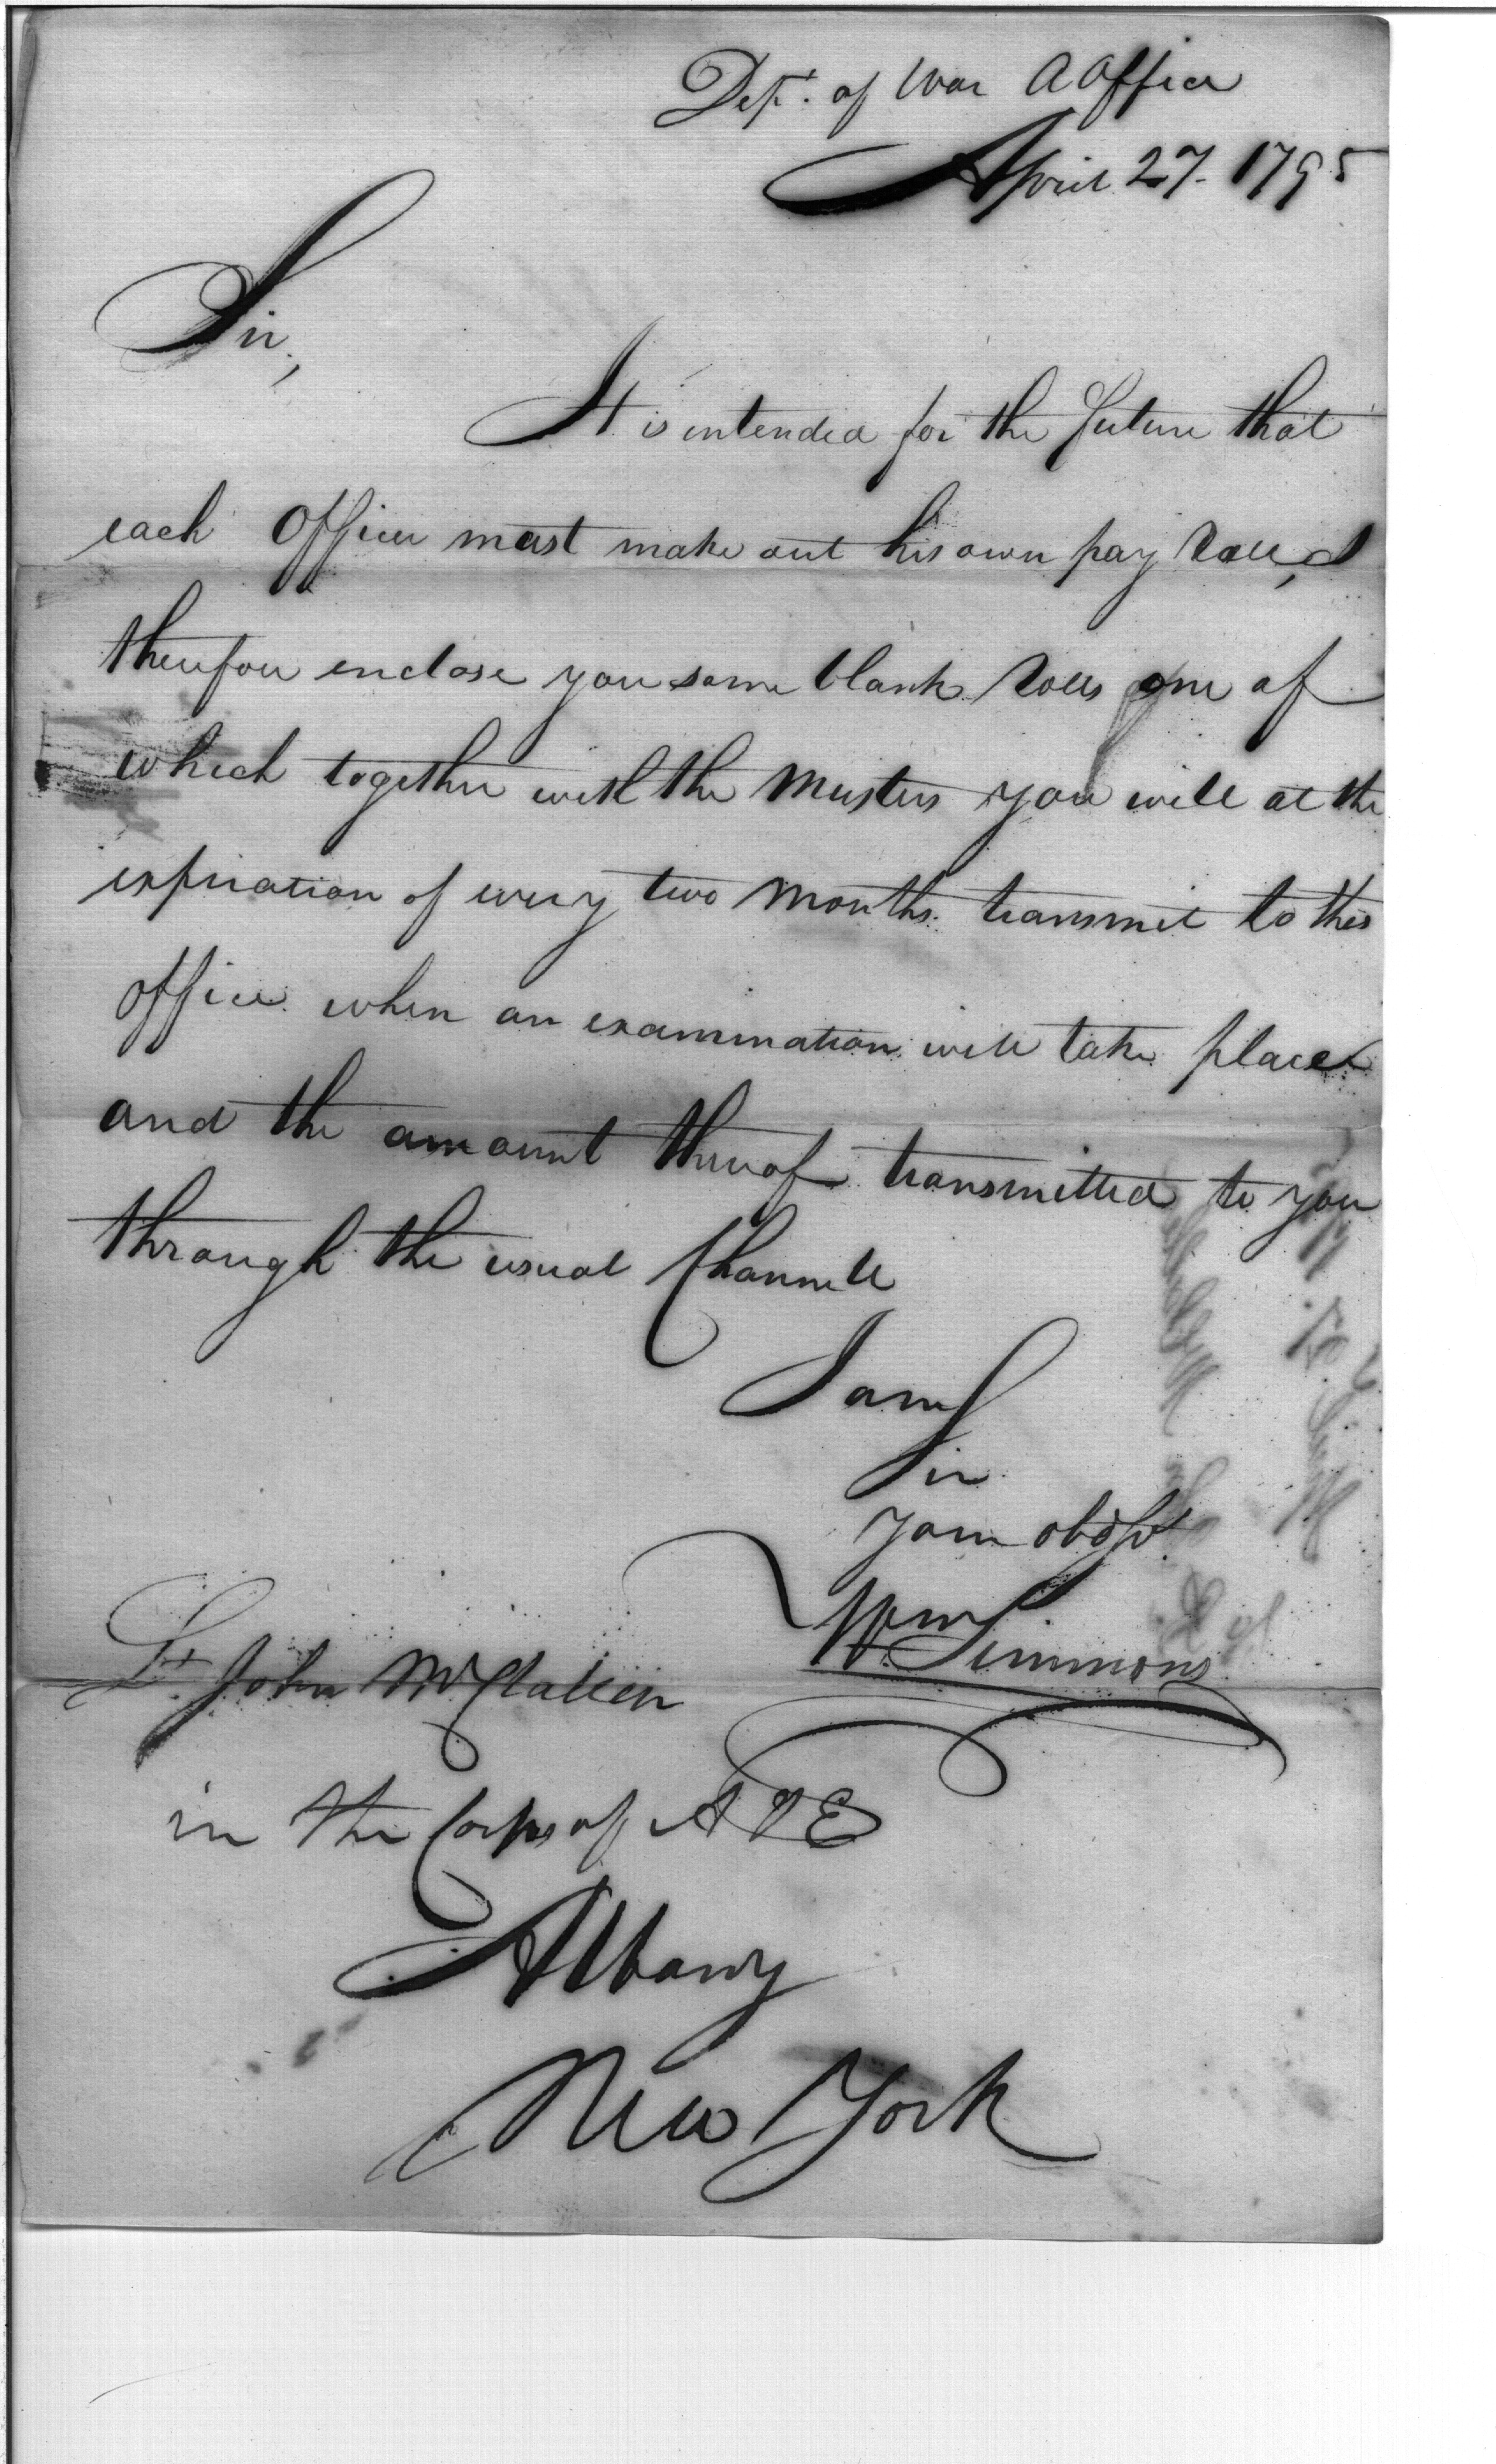 Dept. of War A Office
April 27. 1795
Sir,
It is intended for the future that
each Officer must make out his own pay Roll, I
therefore enclose you some blank Rolls one of
which together with the Musters you will at the
expiration of every two Months transmit to this
office when an examination will take place
and the amount thereof transmitted to you
through the usual Channell
I am
Sir
Your obdSt.
Wm Simmons
W. Simmons
Lt. John McClallen
in the Corps of A & E
Albany
New York